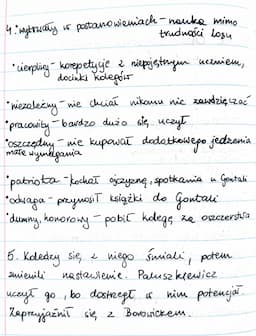 4. • wytrwały w postanowieniach - nauka mimo
trudności losu
• cierpliwy - korepetycje z niepojętnym uczniem,
docinki kolegów
• niezależny - nie chciał nikomu nic zawdzięczać
• pracowity - bardzo dużo się uczył
• oszczędny - nie kupował dodatkowego jedzenia
małe wymagania
• patriota - kochał ojczyznę, spotkania u Gontali
• odwaga - przynosił książki do Gontali
• dumny, honorowy - pobił kolegę za oszczerstwa
5. Koledzy się z niego śmiali, potem
zmienili nastawienie. Paluszkiewicz
uczył go, bo dostrzegł w nim potencjał.
Zaprzyjaźnił się z Borowickem.